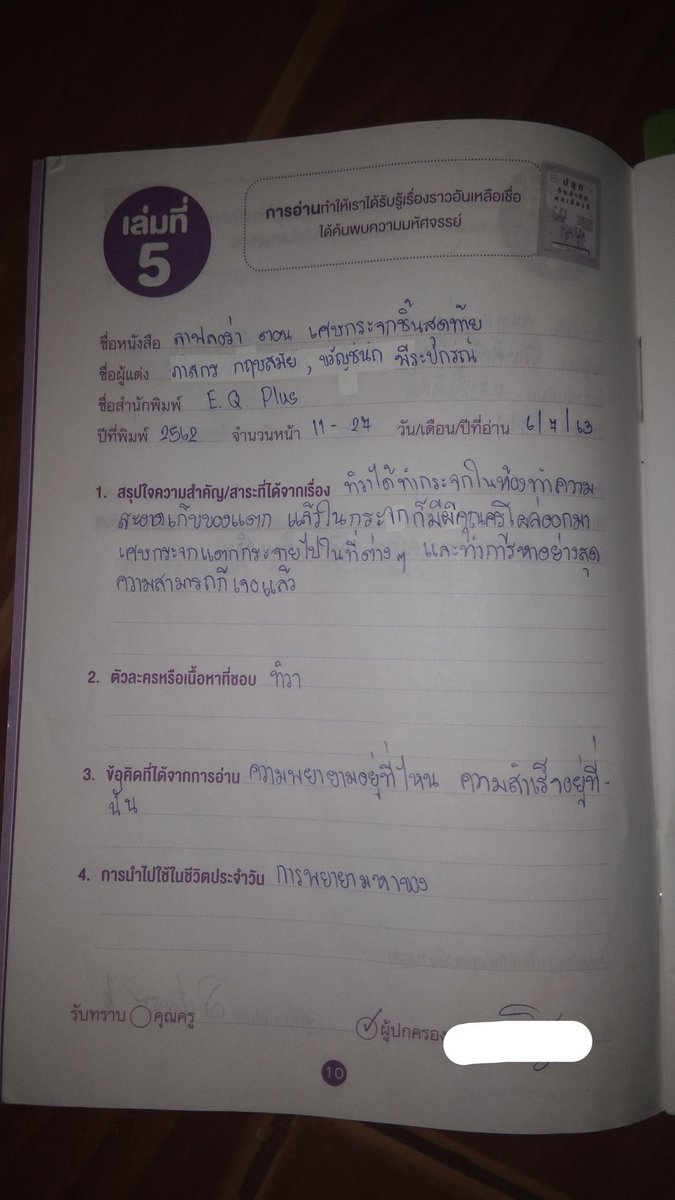 เล่มที่
5
การอ่านทำให้เราได้รับรู้เรื่องราวอันเหลือเชื่อ
ได้ค้นพบความมหัศจรรย์
ปลุก
ชื่อหนังสือ ลาฟลอร่า ตอน เศษกระจกชิ้นสุดท้าย
ชื่อผู้แต่ง ภาสกร กฤษสมัย, ขวัญชนก พีระปกรณ์
ชื่อสำนักพิมพ์ E.Q Plus
ปีที่พิมพ์ 2562 จำนวนหน้า 11 - 27 วัน/เดือน/ปีที่อ่าน 6/7/63
1. สรุปใจความสำคัญ/สาระที่ได้จากเรื่อง ทิวาได้ทำกระจกในห้องทำความ
สะอาดเก็บของแตก แล้วในกระจกก็มีผีคุณครูโผล่ออกมา
เศษกระจกแตกกระจายไปในที่ต่างๆ และทำการหาอย่างสุด
ความสามารถก็เจอแล้ว
2. ตัวละครหรือเนื้อหาที่ชอบ ทิวา
3. ข้อคิดที่ได้จากการอ่าน ความพยายามอยู่ที่ไหน ความสำเร็จอยู่ที่-
นั่น
4. การนำไปใช้ในชีวิตประจำวัน การพยายามหาของ
รับทราบ คุณครู ผู้ปกครอง
10